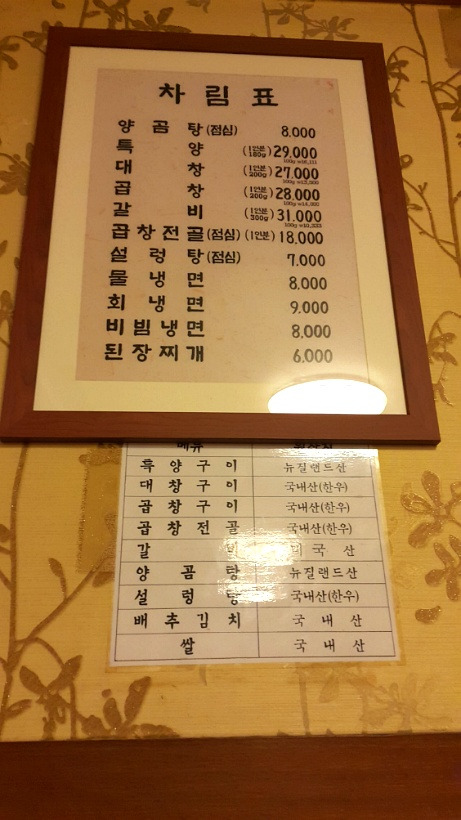 차림표
양곰탕(점심) 8.000
특양 (1인분 180g) 29.000
대창 (1인분 200g) 27.000
곱창 (1인분 200g) 28.000
갈비 (1인분 300g) 31.000
곱창전골(점심) (1인분) 18.000
설렁탕(점심) 7.000
물냉면 8.000
회냉면 9.000
비빔냉면 8.000
된장찌개 6.000
메뉴
특양구이 뉴질랜드산
대창구이 국내산(한우)
곱창구이 국내산(한우)
곱창전골 국내산(한우)
갈비 미국산
양곰탕 뉴질랜드산
설렁탕 국내산(한우)
배추김치 국내산
쌀 국내산